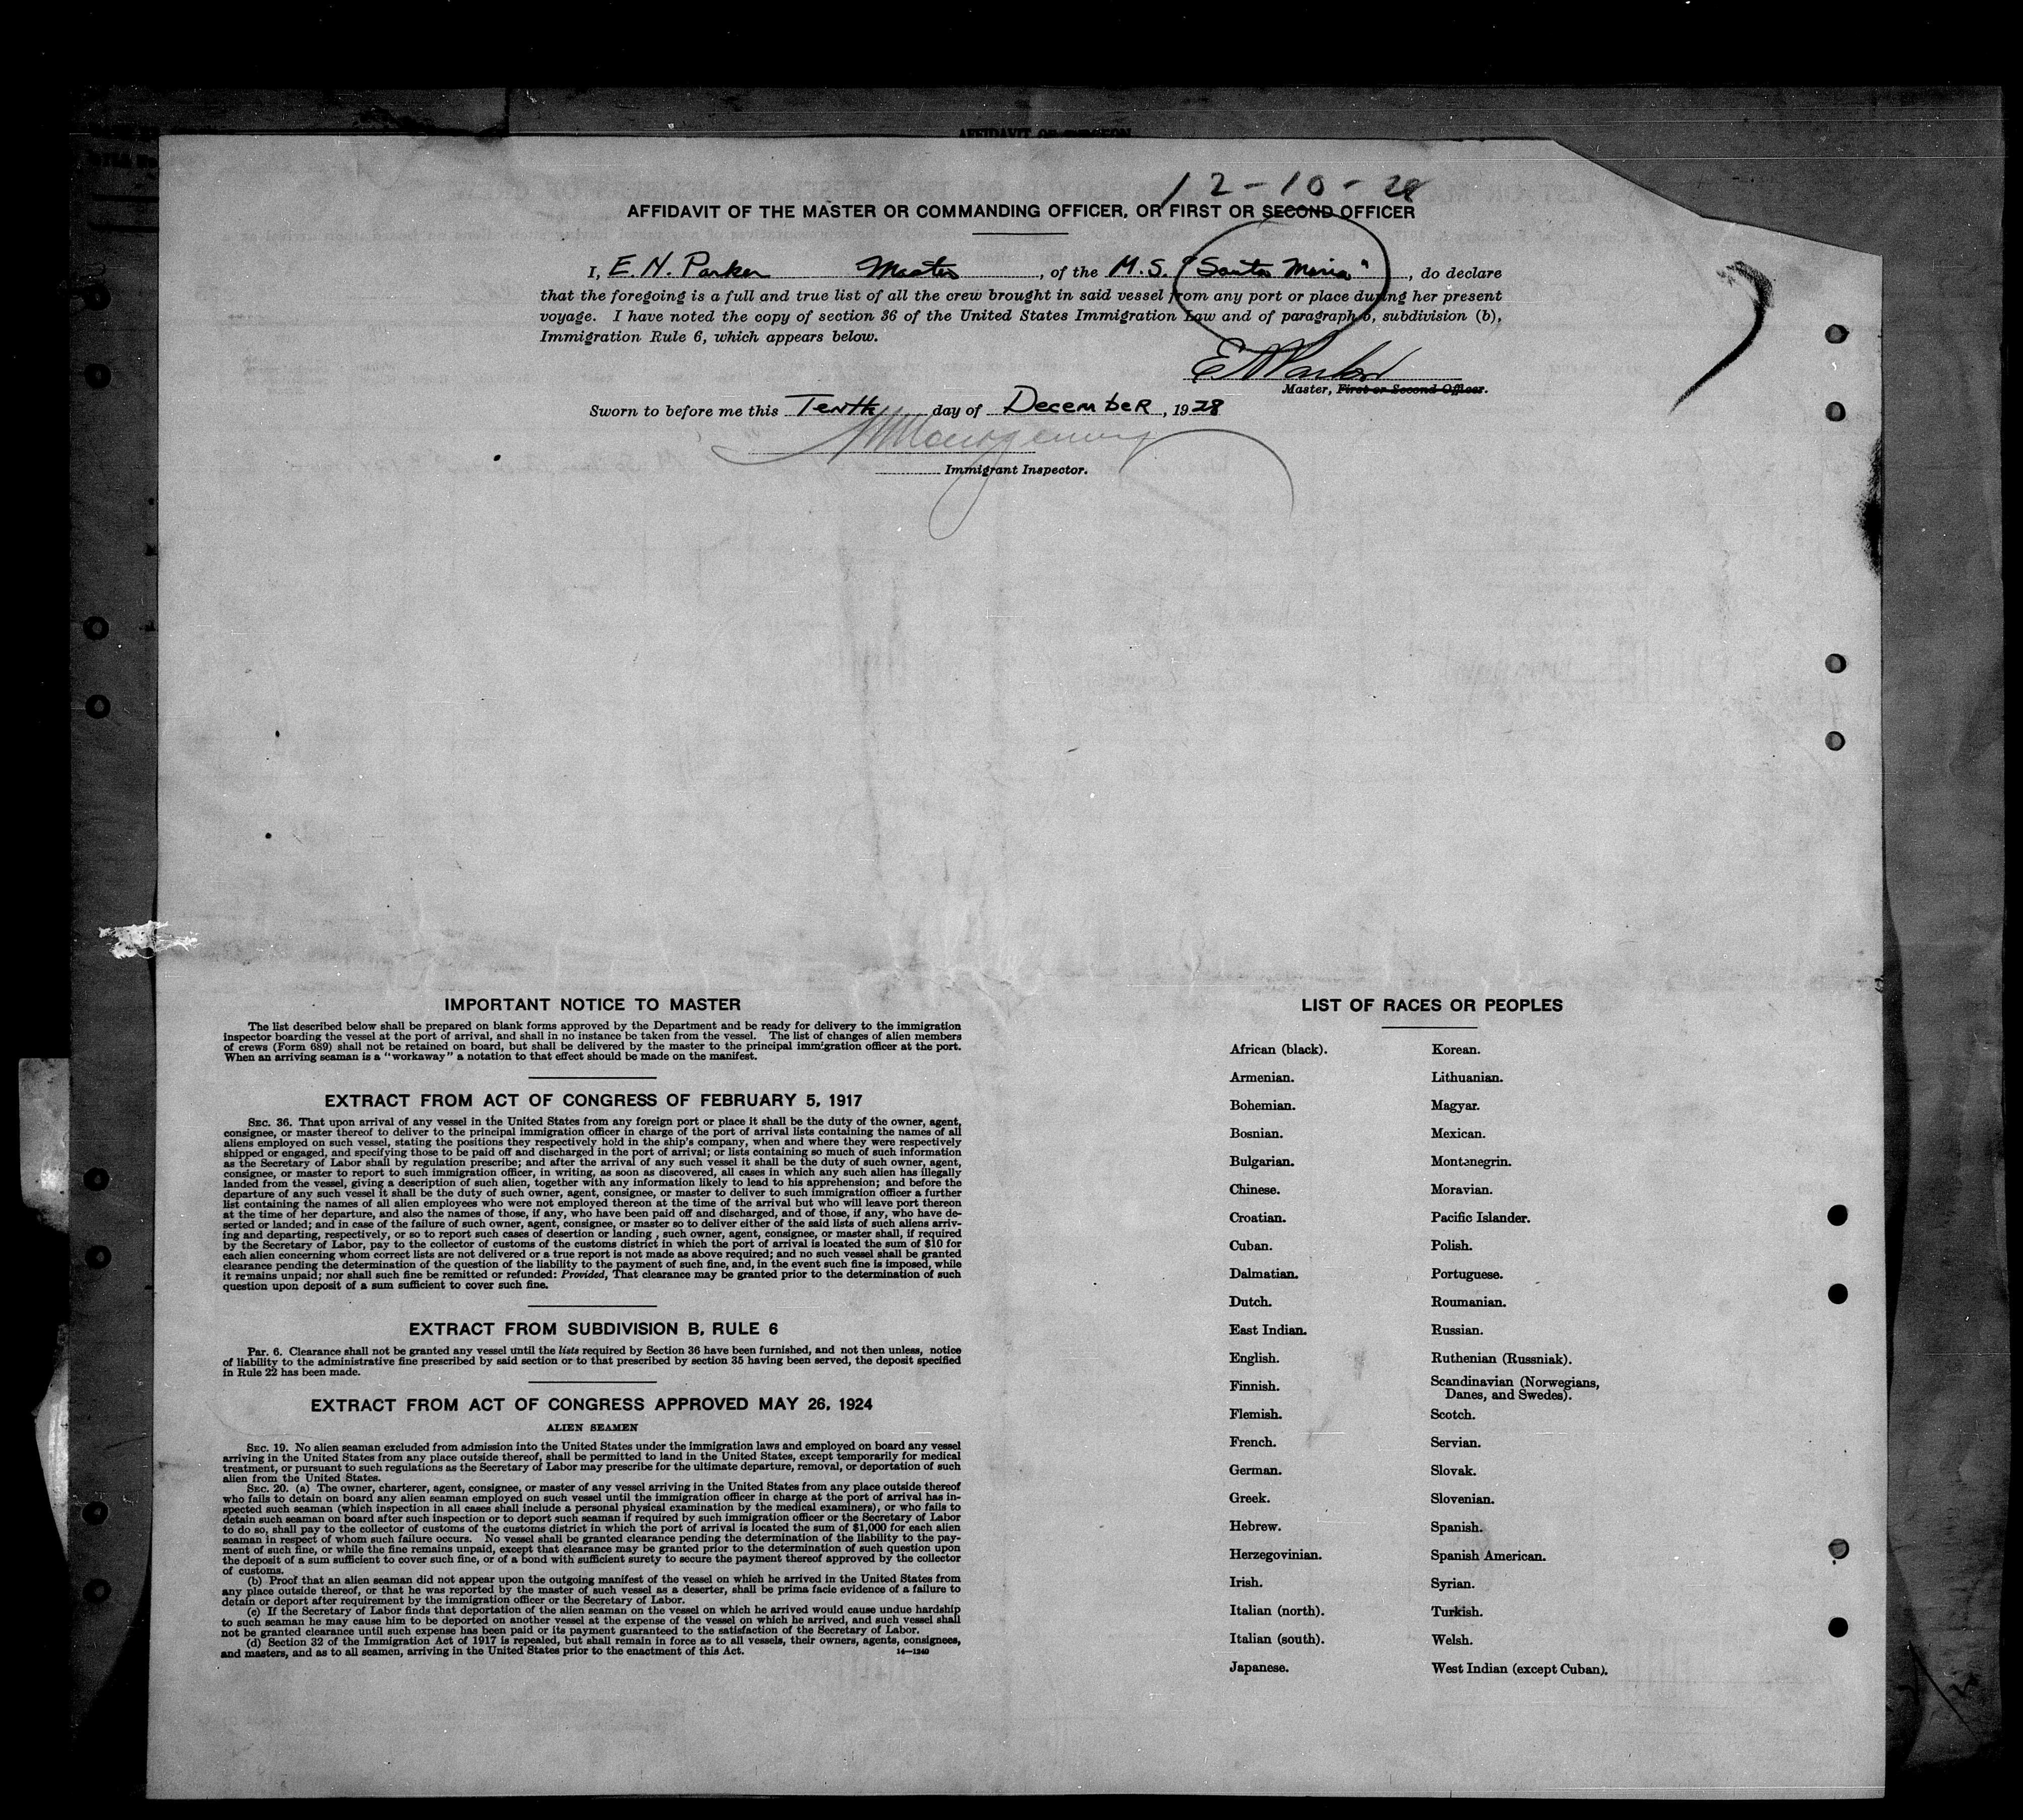 AFFIDAVIT OF SURGEON
12-10-28
AFFIDAVIT OF THE MASTER OR COMMANDING OFFICER, OR FIRST OR SECOND OFFICER
I, E. N. Parker Master, of the M.S. "Santa Maria", do declare
that the foregoing is a full and true list of all the crew brought in said vessel from any port or place during her present
voyage. I have noted the copy of section 36 of the United States Immigration Law and of paragraph 6, subdivision (b),
Immigration Rule 6, which appears below.
E N Parker
Master, First or Second Officer.
Sworn to before me this Tenth day of December, 1928
Immigrant Inspector.
IMPORTANT NOTICE TO MASTER
The list described below shall be prepared on blank forms approved by the Department and be ready for delivery to the immigration
inspector boarding the vessel at the port of arrival, and shall in no instance be taken from the vessel. The list of changes of alien members
of crews (Form 689) shall not be retained on board, but shall be delivered by the master to the principal immigration officer at the port.
When an arriving seaman is a "workaway" a notation to that effect should be made on the manifest.
EXTRACT FROM ACT OF CONGRESS OF FEBRUARY 5, 1917
SEC. 36. That upon arrival of any vessel in the United States from any foreign port or place it shall be the duty of the owner, agent,
consignee, or master thereof to deliver to the principal immigration officer in charge of the port of arrival lists containing the names of all
aliens employed on such vessel, stating the positions they respectively hold in the ship's company, when and where they were respectively
shipped or engaged, and specifying those to be paid off and discharged in the port of arrival; or lists containing so much of such information
as the Secretary of Labor shall by regulation prescribe; and after the arrival of any such vessel it shall be the duty of such owner, agent,
consignee, or master to report to such immigration officer, in writing, as soon as discovered, all cases in which any such alien has illegally
landed from the vessel, giving a description of such alien, together with any information likely to lead to his apprehension; and before the
departure of any such vessel it shall be the duty of such owner, agent, consignee, or master to deliver to such immigration officer a further
list containing the names of all alien employees who were not employed thereon at the time of the arrival but who will leave port thereon
at the time of her departure, and also the names of those, if any, who have been paid off and discharged, and of those, if any, who have de-
serted or landed; and in case of the failure of such owner, agent, consignee, or master so to deliver either of the said lists of such aliens arriv-
ing and departing, respectively, or so to report such cases of desertion or landing, such owner, agent, consignee, or master shall, if required
by the Secretary of Labor, pay to the collector of customs of the customs district in which the port of arrival is located the sum of $10 for
each alien concerning whom correct lists are not delivered or a true report is not made as above required; and no such vessel shall be granted
clearance pending the determination of the question of the liability to the payment of such fine, and, in the event such fine is imposed, while
it remains unpaid; nor shall such fine be remitted or refunded: Provided, That clearance may be granted prior to the determination of such
question upon deposit of a sum sufficient to cover such fine.
EXTRACT FROM SUBDIVISION B, RULE 6
PAR. 6. Clearance shall not be granted any vessel until the lists required by Section 36 have been furnished, and not then unless, notice
of liability to the administrative fine prescribed by said section or to that prescribed by section 35 having been served, the deposit specified
in Rule 22 has been made.
EXTRACT FROM ACT OF CONGRESS APPROVED MAY 26, 1924
ALIEN SEAMEN
SEC. 19. No alien seaman excluded from admission into the United States under the immigration laws and employed on board any vessel
arriving in the United States from any place outside thereof, shall be permitted to land in the United States, except temporarily for medical
treatment, or pursuant to such regulations as the Secretary of Labor may prescribe for the ultimate departure, removal, or deportation of such
alien from the United States.
SEC. 20. (a) The owner, charterer, agent, consignee, or master of any vessel arriving in the United States from any place outside thereof
who fails to detain on board any alien seaman employed on such vessel until the immigration officer in charge at the port of arrival has in-
spected such seaman (which inspection in all cases shall include a personal physical examination by the medical examiners), or who fails to
detain such seaman on board after such inspection or to deport such seaman if required by such immigration officer or the Secretary of Labor
to do so, shall pay to the collector of customs of the customs district in which the port of arrival is located the sum of $1,000 for each alien
seaman in respect of whom such failure occurs. No vessel shall be granted clearance pending the determination of the liability to the pay-
ment of such fine, or while the fine remains unpaid, except that clearance may be granted prior to the determination of such question upon
the deposit of a sum sufficient to cover such fine, or of a bond with sufficient surety to secure the payment thereof approved by the collector
of customs.
(b) Proof that an alien seaman did not appear upon the outgoing manifest of the vessel on which he arrived in the United States from
any place outside thereof, or that he was reported by the master of such vessel as a deserter, shall be prima facie evidence of a failure to
detain or deport after requirement by the immigration officer or the Secretary of Labor.
(c) If the Secretary of Labor finds that deportation of the alien seaman on the vessel on which he arrived would cause undue hardship
to such seaman he may cause him to be deported on another vessel at the expense of the vessel on which he arrived, and such vessel shall
not be granted clearance until such expense has been paid or its payment guaranteed to the satisfaction of the Secretary of Labor.
(d) Section 32 of the Immigration Act of 1917 is repealed, but shall remain in force as to all vessels, their owners, agents, consignees,
and masters, and as to all seamen, arriving in the United States prior to the enactment of this Act.
14—1240
LIST OF RACES OR PEOPLES
African (black).
Armenian.
Bohemian.
Bosnian.
Bulgarian.
Chinese.
Croatian.
Cuban.
Dalmatian.
Dutch.
East Indian.
English.
Finnish.
Flemish.
French.
German.
Greek.
Hebrew.
Herzegovinian.
Irish.
Italian (north).
Italian (south).
Japanese.
Korean.
Lithuanian.
Magyar.
Mexican.
Montenegrin.
Moravian.
Pacific Islander.
Polish.
Portuguese.
Roumanian.
Russian.
Ruthenian (Russniak).
Scandinavian (Norwegians,
Danes, and Swedes).
Scotch.
Servian.
Slovak.
Slovenian.
Spanish.
Spanish American.
Syrian.
Turkish.
Welsh.
West Indian (except Cuban).